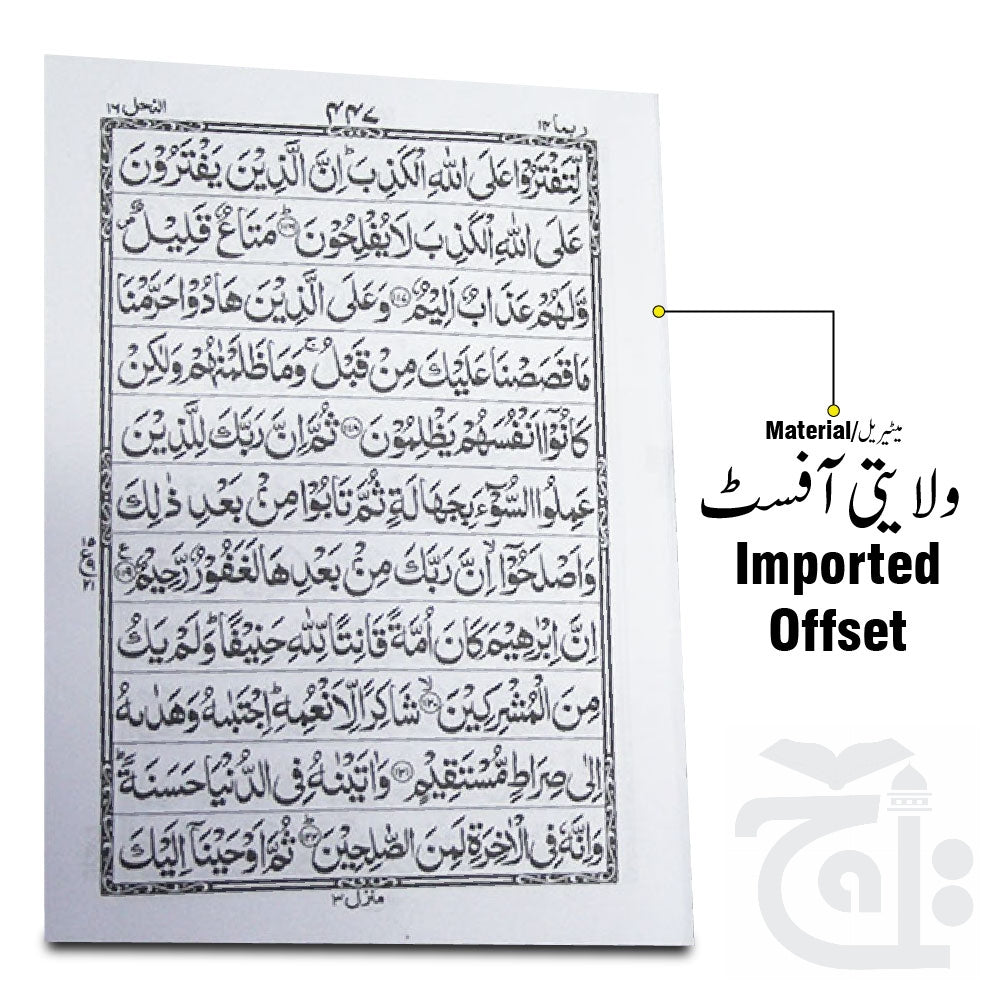 ربما ۱۴
۴۴۷
النحل ۱۶
لِّتَفْتَرُوْا عَلَى اللّٰهِ الْكَذِبَ ؕ اِنَّ الَّذِيْنَ يَفْتَرُوْنَ
عَلَى اللّٰهِ الْكَذِبَ لَا يُفْلِحُوْنَ ؕ۝۱۱۶ مَتَاعٌ قَلِيْلٌ ۪
وَّلَهُمْ عَذَابٌ اَلِيْمٌ ۝۱۱۷ وَعَلَى الَّذِيْنَ هَادُوْا حَرَّمْنَا
مَا قَصَصْنَا عَلَيْكَ مِنْ قَبْلُ ۚ وَمَا ظَلَمْنٰهُمْ وَلٰكِنْ
كَانُوْۤا اَنْفُسَهُمْ يَظْلِمُوْنَ ۝۱۱۸ ثُمَّ اِنَّ رَبَّكَ لِلَّذِيْنَ
عَمِلُوا السُّوْٓءَ بِجَهَالَةٍ ثُمَّ تَابُوْا مِنْۢ بَعْدِ ذٰلِكَ
وَاَصْلَحُوْۤا ۙ اِنَّ رَبَّكَ مِنْۢ بَعْدِهَا لَغَفُوْرٌ رَّحِيْمٌ ۝۱۱۹ ع
۱۵
ع ۹
۲۱
اِنَّ اِبْرٰهِيْمَ كَانَ اُمَّةً قَانِتًا لِّلّٰهِ حَنِيْفًا ؕ وَلَمْ يَكُ
مِنَ الْمُشْرِكِيْنَ ۙ۝۱۲۰ شَاكِرًا لِّاَنْعُمِهٖ ؕ اِجْتَبٰىهُ وَهَدٰىهُ
اِلٰى صِرَاطٍ مُّسْتَقِيْمٍ ۝۱۲۱ وَاٰتَيْنٰهُ فِى الدُّنْيَا حَسَنَةً ؕ
وَاِنَّهٗ فِى الْاٰخِرَةِ لَمِنَ الصّٰلِحِيْنَ ؕ۝۱۲۲ ثُمَّ اَوْحَيْنَاۤ اِلَيْكَ
منزل ۳
Material/میٹیریل
ولایتی آفسٹ
Imported
Offset